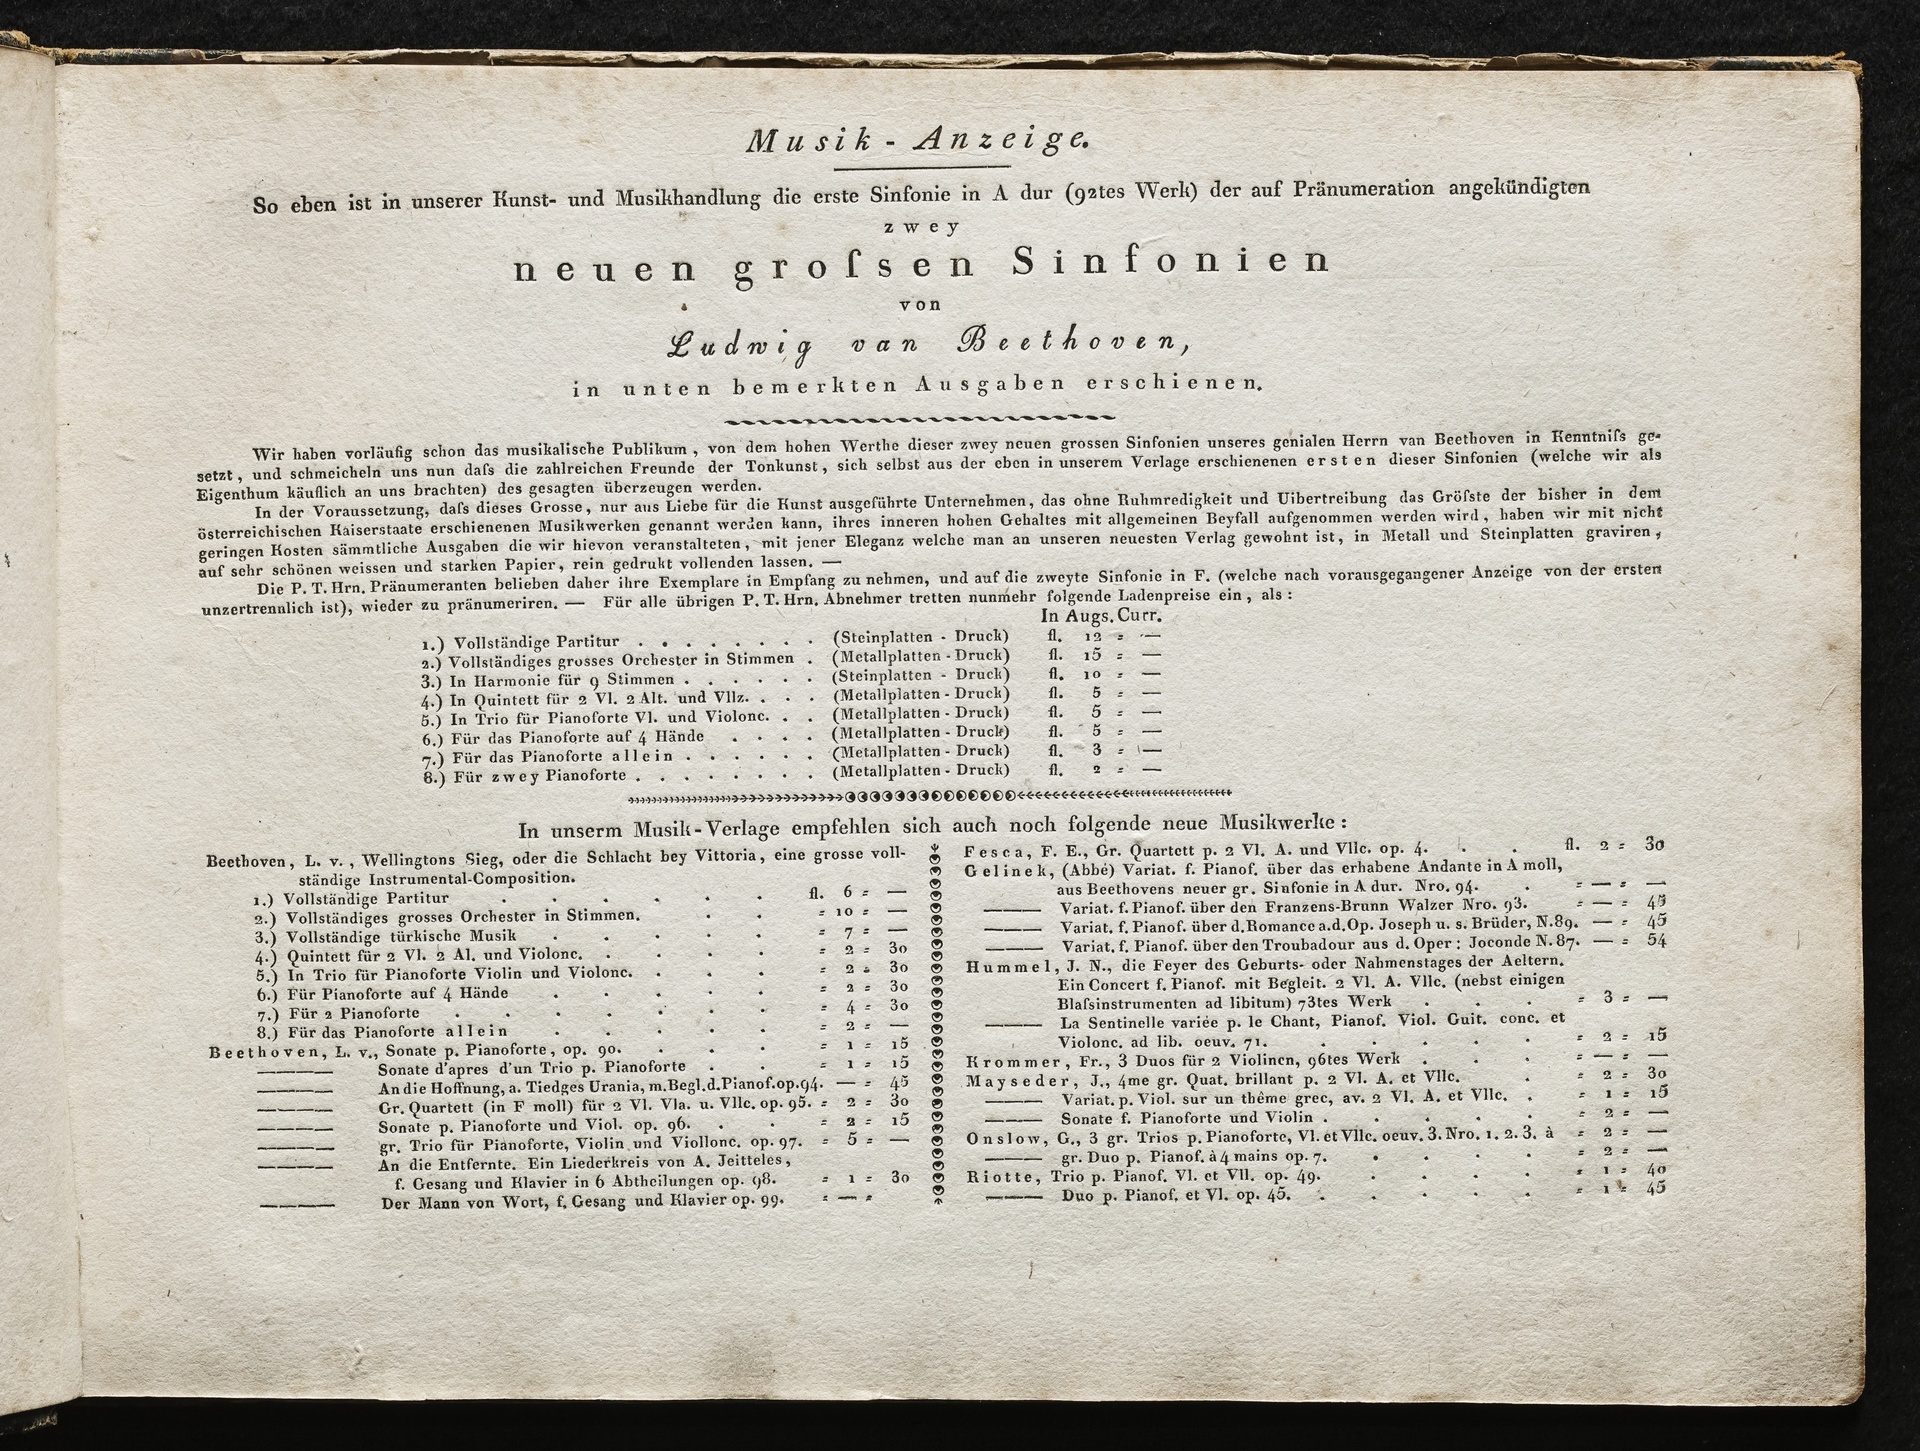 Musik-Anzeige.
So eben ist in unserer Kunst- und Musikhandlung die erste Sinfonie in A dur (92tes Werk) der auf Pränumeration angekündigten
zwey
neuen groſsen Sinfonien
von
Ludwig van Beethoven,
in unten bemerkten Ausgaben erschienen.
Wir haben vorläufig schon das musikalische Publikum, von dem hohen Werthe dieser zwey neuen grossen Sinfonien unseres genialen Herrn van Beethoven in Kenntniſs ge-
setzt, und schmeicheln uns nun daſs die zahlreichen Freunde der Tonkunst, sich selbst aus der eben in unserem Verlage erschienenen ersten dieser Sinfonien (welche wir als
Eigenthum käuflich an uns brachten) des gesagten überzeugen werden.
In der Voraussetzung, daſs dieses Grosse, nur aus Liebe für die Kunst ausgeführte Unternehmen, das ohne Ruhmredigkeit und Uibertreibung das Gröſste der bisher in dem
österreichischen Kaiserstaate erschienenen Musikwerken genannt werden kann, ihres inneren hohen Gehaltes mit allgemeinen Beyfall aufgenommen werden wird, haben wir mit nicht
geringen Kosten sämmtliche Ausgaben die wir hievon veranstalteten, mit jener Eleganz welche man an unseren neuesten Verlag gewohnt ist, in Metall und Steinplatten graviren,
auf sehr schönen weissen und starken Papier, rein gedrukt vollenden lassen. —
Die P. T. Hrn. Pränumeranten belieben daher ihre Exemplare in Empfang zu nehmen, und auf die zweyte Sinfonie in F. (welche nach vorausgegangener Anzeige von der ersten
unzertrennlich ist), wieder zu pränumeriren. — Für alle übrigen P. T. Hrn. Abnehmer tretten nunmehr folgende Ladenpreise ein, als:
In Augs. Curr.
1.) Vollständige Partitur . . . . . . . . (Steinplatten - Druck) fl. 12 = —
2.) Vollständiges grosses Orchester in Stimmen . (Metallplatten - Druck) fl. 15 = —
3.) In Harmonie für 9 Stimmen . . . . . . (Steinplatten - Druck) fl. 10 = —
4.) In Quintett für 2 Vl. 2 Alt. und Vllz. . . . (Metallplatten - Druck) fl. 5 = —
5.) In Trio für Pianoforte Vl. und Violonc. . . (Metallplatten - Druck) fl. 5 = —
6.) Für das Pianoforte auf 4 Hände . . . . (Metallplatten - Druck) fl. 5 = —
7.) Für das Pianoforte allein . . . . . . (Metallplatten - Druck) fl. 3 = —
8.) Für zwey Pianoforte . . . . . . . . (Metallplatten - Druck) fl. 2 = —
In unserm Musik-Verlage empfehlen sich auch noch folgende neue Musikwerke:
Beethoven, L. v., Wellingtons Sieg, oder die Schlacht bey Vittoria, eine grosse voll-
ständige Instrumental-Composition.
1.) Vollständige Partitur . . . . . . fl. 6 = —
2.) Vollständiges grosses Orchester in Stimmen. . . = 10 = —
3.) Vollständige türkische Musik . . . . . = 7 = —
4.) Quintett für 2 Vl. 2 Al. und Violonc. . . . . = 2 = 30
5.) In Trio für Pianoforte Violin und Violonc. . . . = 2 = 30
6.) Für Pianoforte auf 4 Hände . . . . . = 2 = 30
7.) Für 2 Pianoforte . . . . . . . = 4 = 30
8.) Für das Pianoforte allein . . . . . = 2 = —
Beethoven, L. v., Sonate p. Pianoforte, op. 90. . . . = 1 = 15
——— Sonate d'apres d'un Trio p. Pianoforte . . = 1 = 15
——— An die Hoffnung, a. Tiedges Urania, m. Begl. d. Pianof. op. 94. — = 45
——— Gr. Quartett (in F moll) für 2 Vl. Vla. u. Vllc. op. 95. = 2 = 30
——— Sonate p. Pianoforte und Viol. op. 96. . . = 2 = 15
——— gr. Trio für Pianoforte, Violin und Viollonc. op. 97. = 5 = —
——— An die Entfernte. Ein Liederkreis von A. Jeitteles,
f. Gesang und Klavier in 6 Abtheilungen op. 98. = 1 = 30
——— Der Mann von Wort, f. Gesang und Klavier op. 99. = — =
Fesca, F. E., Gr. Quartett p. 2 Vl. A. und Vllc. op. 4. . . fl. 2 = 30
Gelinek, (Abbé) Variat. f. Pianof. über das erhabene Andante in A moll,
aus Beethovens neuer gr. Sinfonie in A dur. Nro. 94. . = — = —
——— Variat. f. Pianof. über den Franzens-Brunn Walzer Nro. 93. = — = 45
——— Variat. f. Pianof. über d. Romance a. d. Op. Joseph u. s. Brüder, N. 89. — = 45
——— Variat. f. Pianof. über den Troubadour aus d. Oper: Joconde N. 87. — = 54
Hummel, J. N., die Feyer des Geburts- oder Nahmenstages der Aeltern.
Ein Concert f. Pianof. mit Begleit. 2 Vl. A. Vllc. (nebst einigen
Blaſsinstrumenten ad libitum) 73tes Werk . . . = 3 = —
——— La Sentinelle variée p. le Chant, Pianof. Viol. Guit. conc. et
Violonc. ad lib. oeuv. 71. . . . . . = 2 = 15
Krommer, Fr., 3 Duos für 2 Violinen, 96tes Werk . . . = — = —
Mayseder, J., 4me gr. Quat. brillant p. 2 Vl. A. et Vllc. . . = 2 = 30
——— Variat. p. Viol. sur un thême grec, av. 2 Vl. A. et Vllc. . = 1 = 15
——— Sonate f. Pianoforte und Violin . . . . . = 2 = —
Onslow, G., 3 gr. Trios p. Pianoforte, Vl. et Vllc. oeuv. 3. Nro. 1. 2. 3. à = 2 = —
——— gr. Duo p. Pianof. à 4 mains op. 7. . . . . = 2 = —
Riotte, Trio p. Pianof. Vl. et Vll. op. 49. . . . . = 1 = 40
——— Duo p. Pianof. et Vl. op. 45. . . . . . = 1 = 45